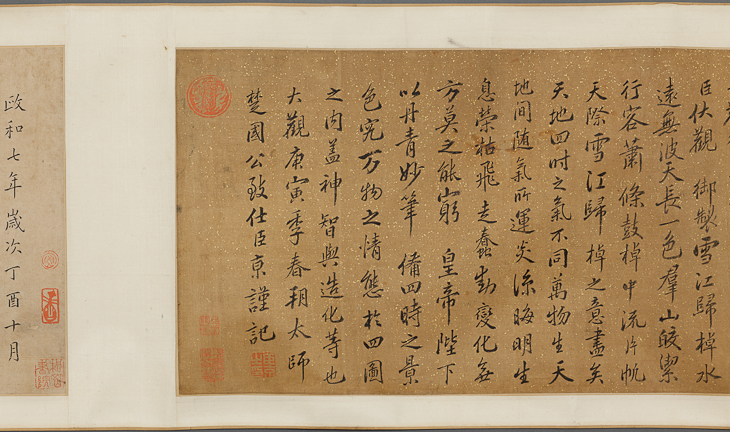 臣伏觀 御製雪江歸棹水
遠無波天長一色羣山皎潔
行客蕭條鼓棹中流片帆
天際雪江歸棹之意盡矣
天地四時之氣不同萬物生天
地間随氣所運炎涼晦明生
息榮枯飛走蠢動變化無
方莫之能窮 皇帝陛下
以丹青妙筆 備四時之景
色究万物之情態於四圖
之内盖神智與造化等也
大觀庚寅季春朔太師
楚國公致仕臣京謹記
政和七年歲次丁酉十月